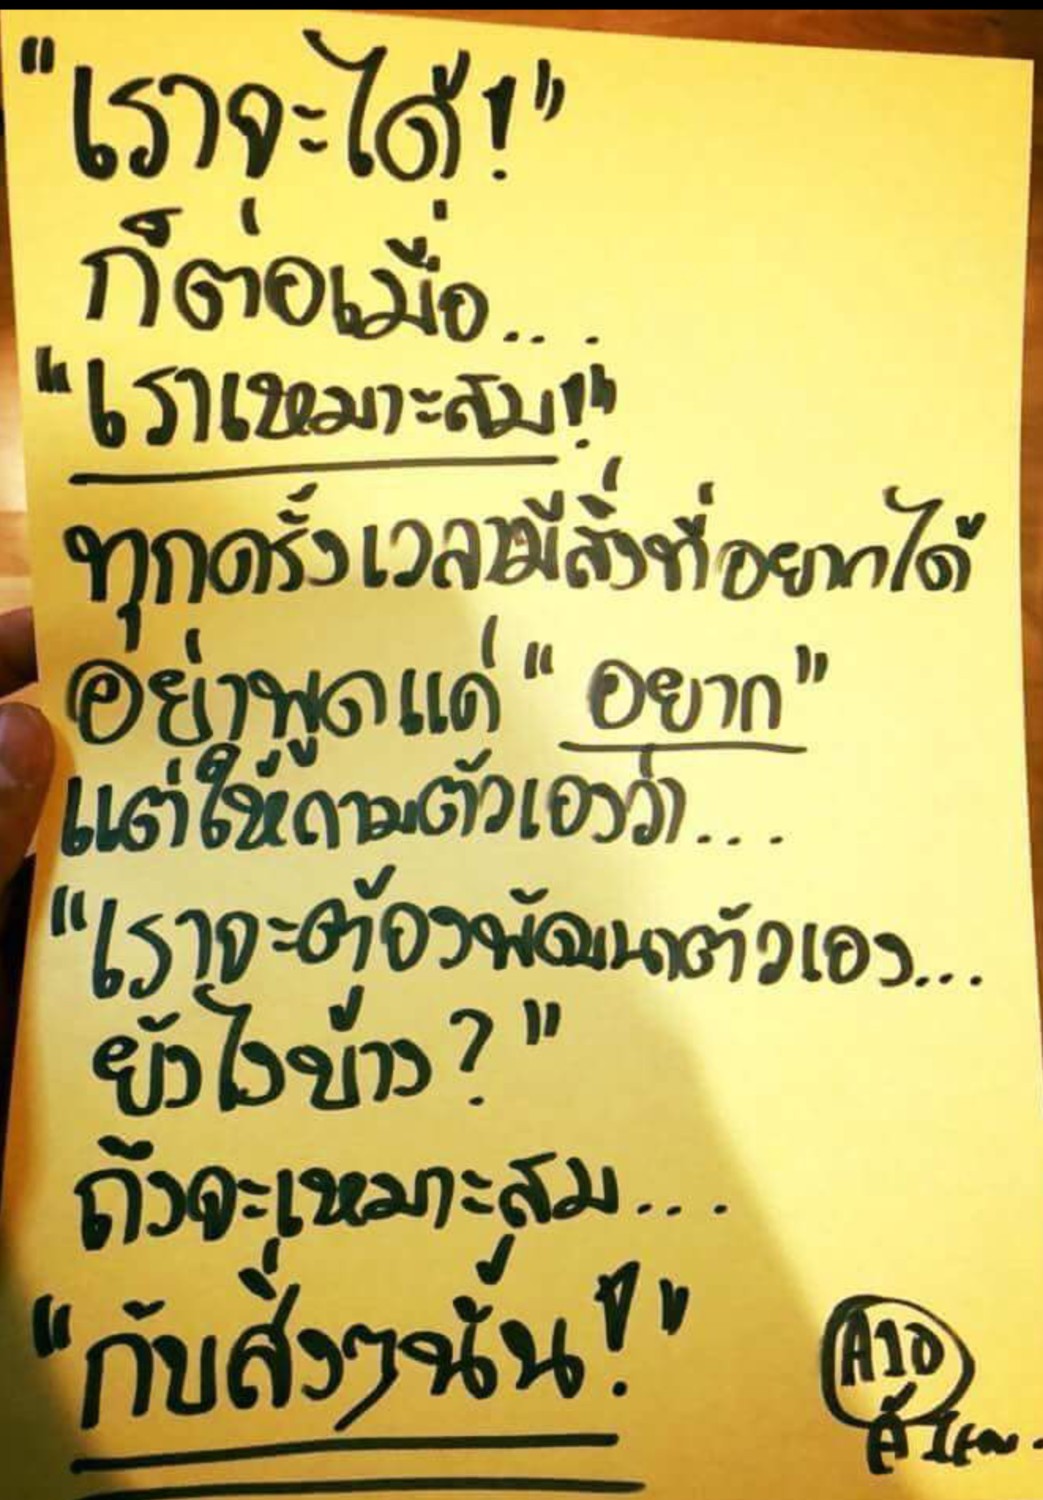 "เราจะได้!"
ก็ต่อเมื่อ...
"เราเหมาะสม!"
ทุกครั้งเวลามีสิ่งที่อยากได้
อย่าพูดแค่ "อยาก"
แต่ให้ถามตัวเองว่า...
"เราจะต้องพัฒนาตัวเอง...
ยังไงบ้าง?"
ถึงจะเหมาะสม...
"กับสิ่งๆนั้น!"